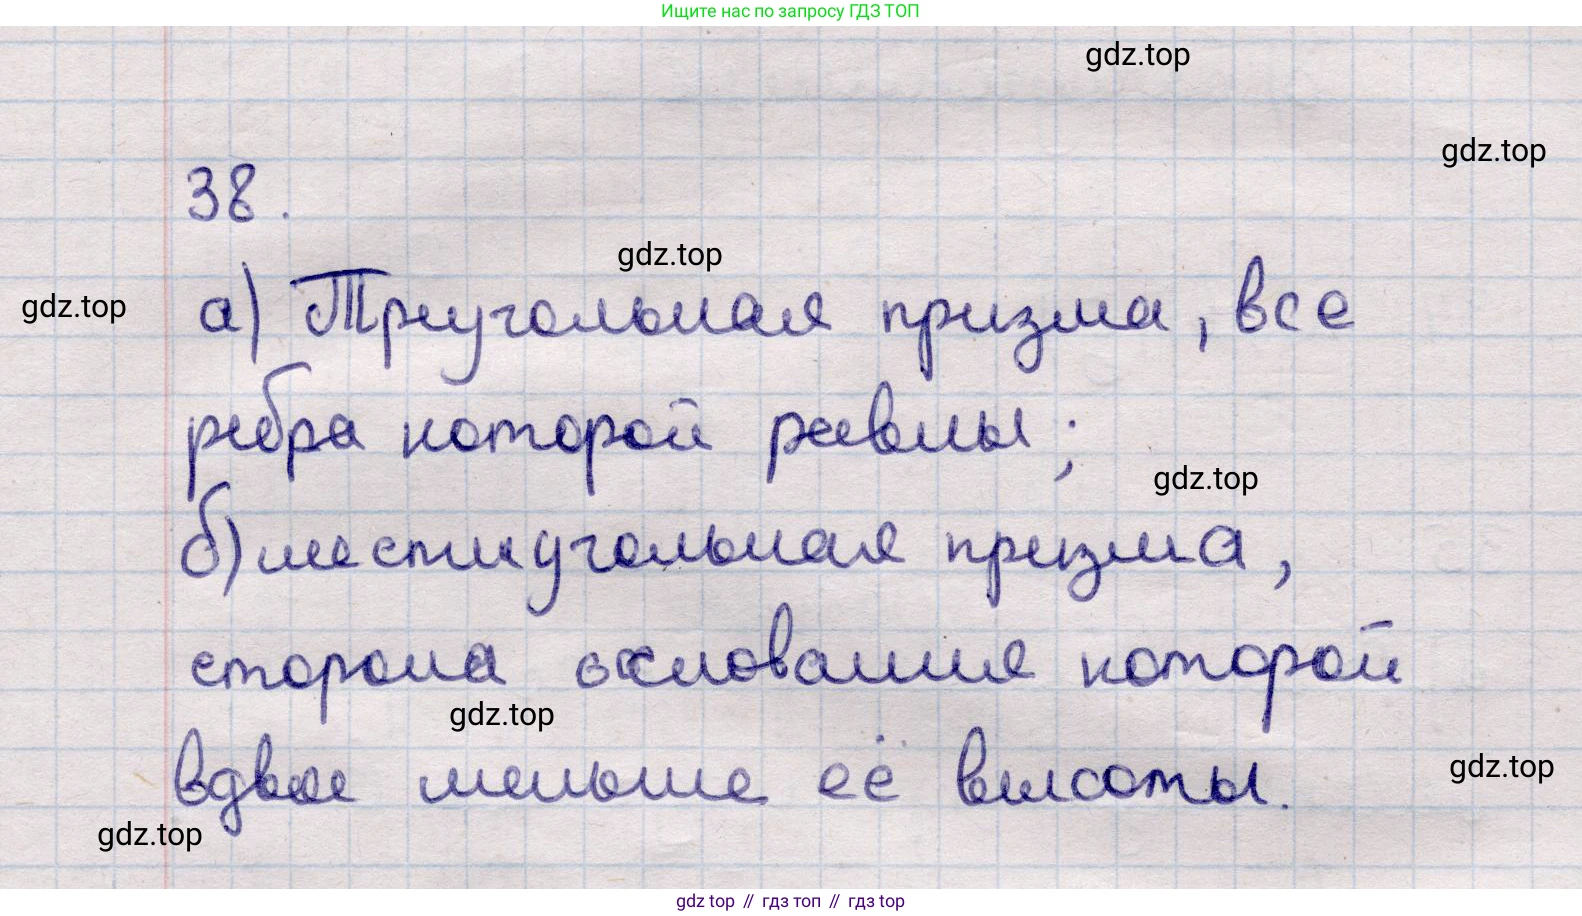 Ищите нас по запросу ГДЗ ТОП
gdz.top
gdz.top
38.
gdz.top
gdz.top
а) Треугольная призма, все
ребра которой равны;
gdz.top
б) шестиугольная призма,
сторона основания которой
gdz.top
вдвое меньше её высоты.
gdz.top
gdz.top
gdz top // гдз топ // гдз top